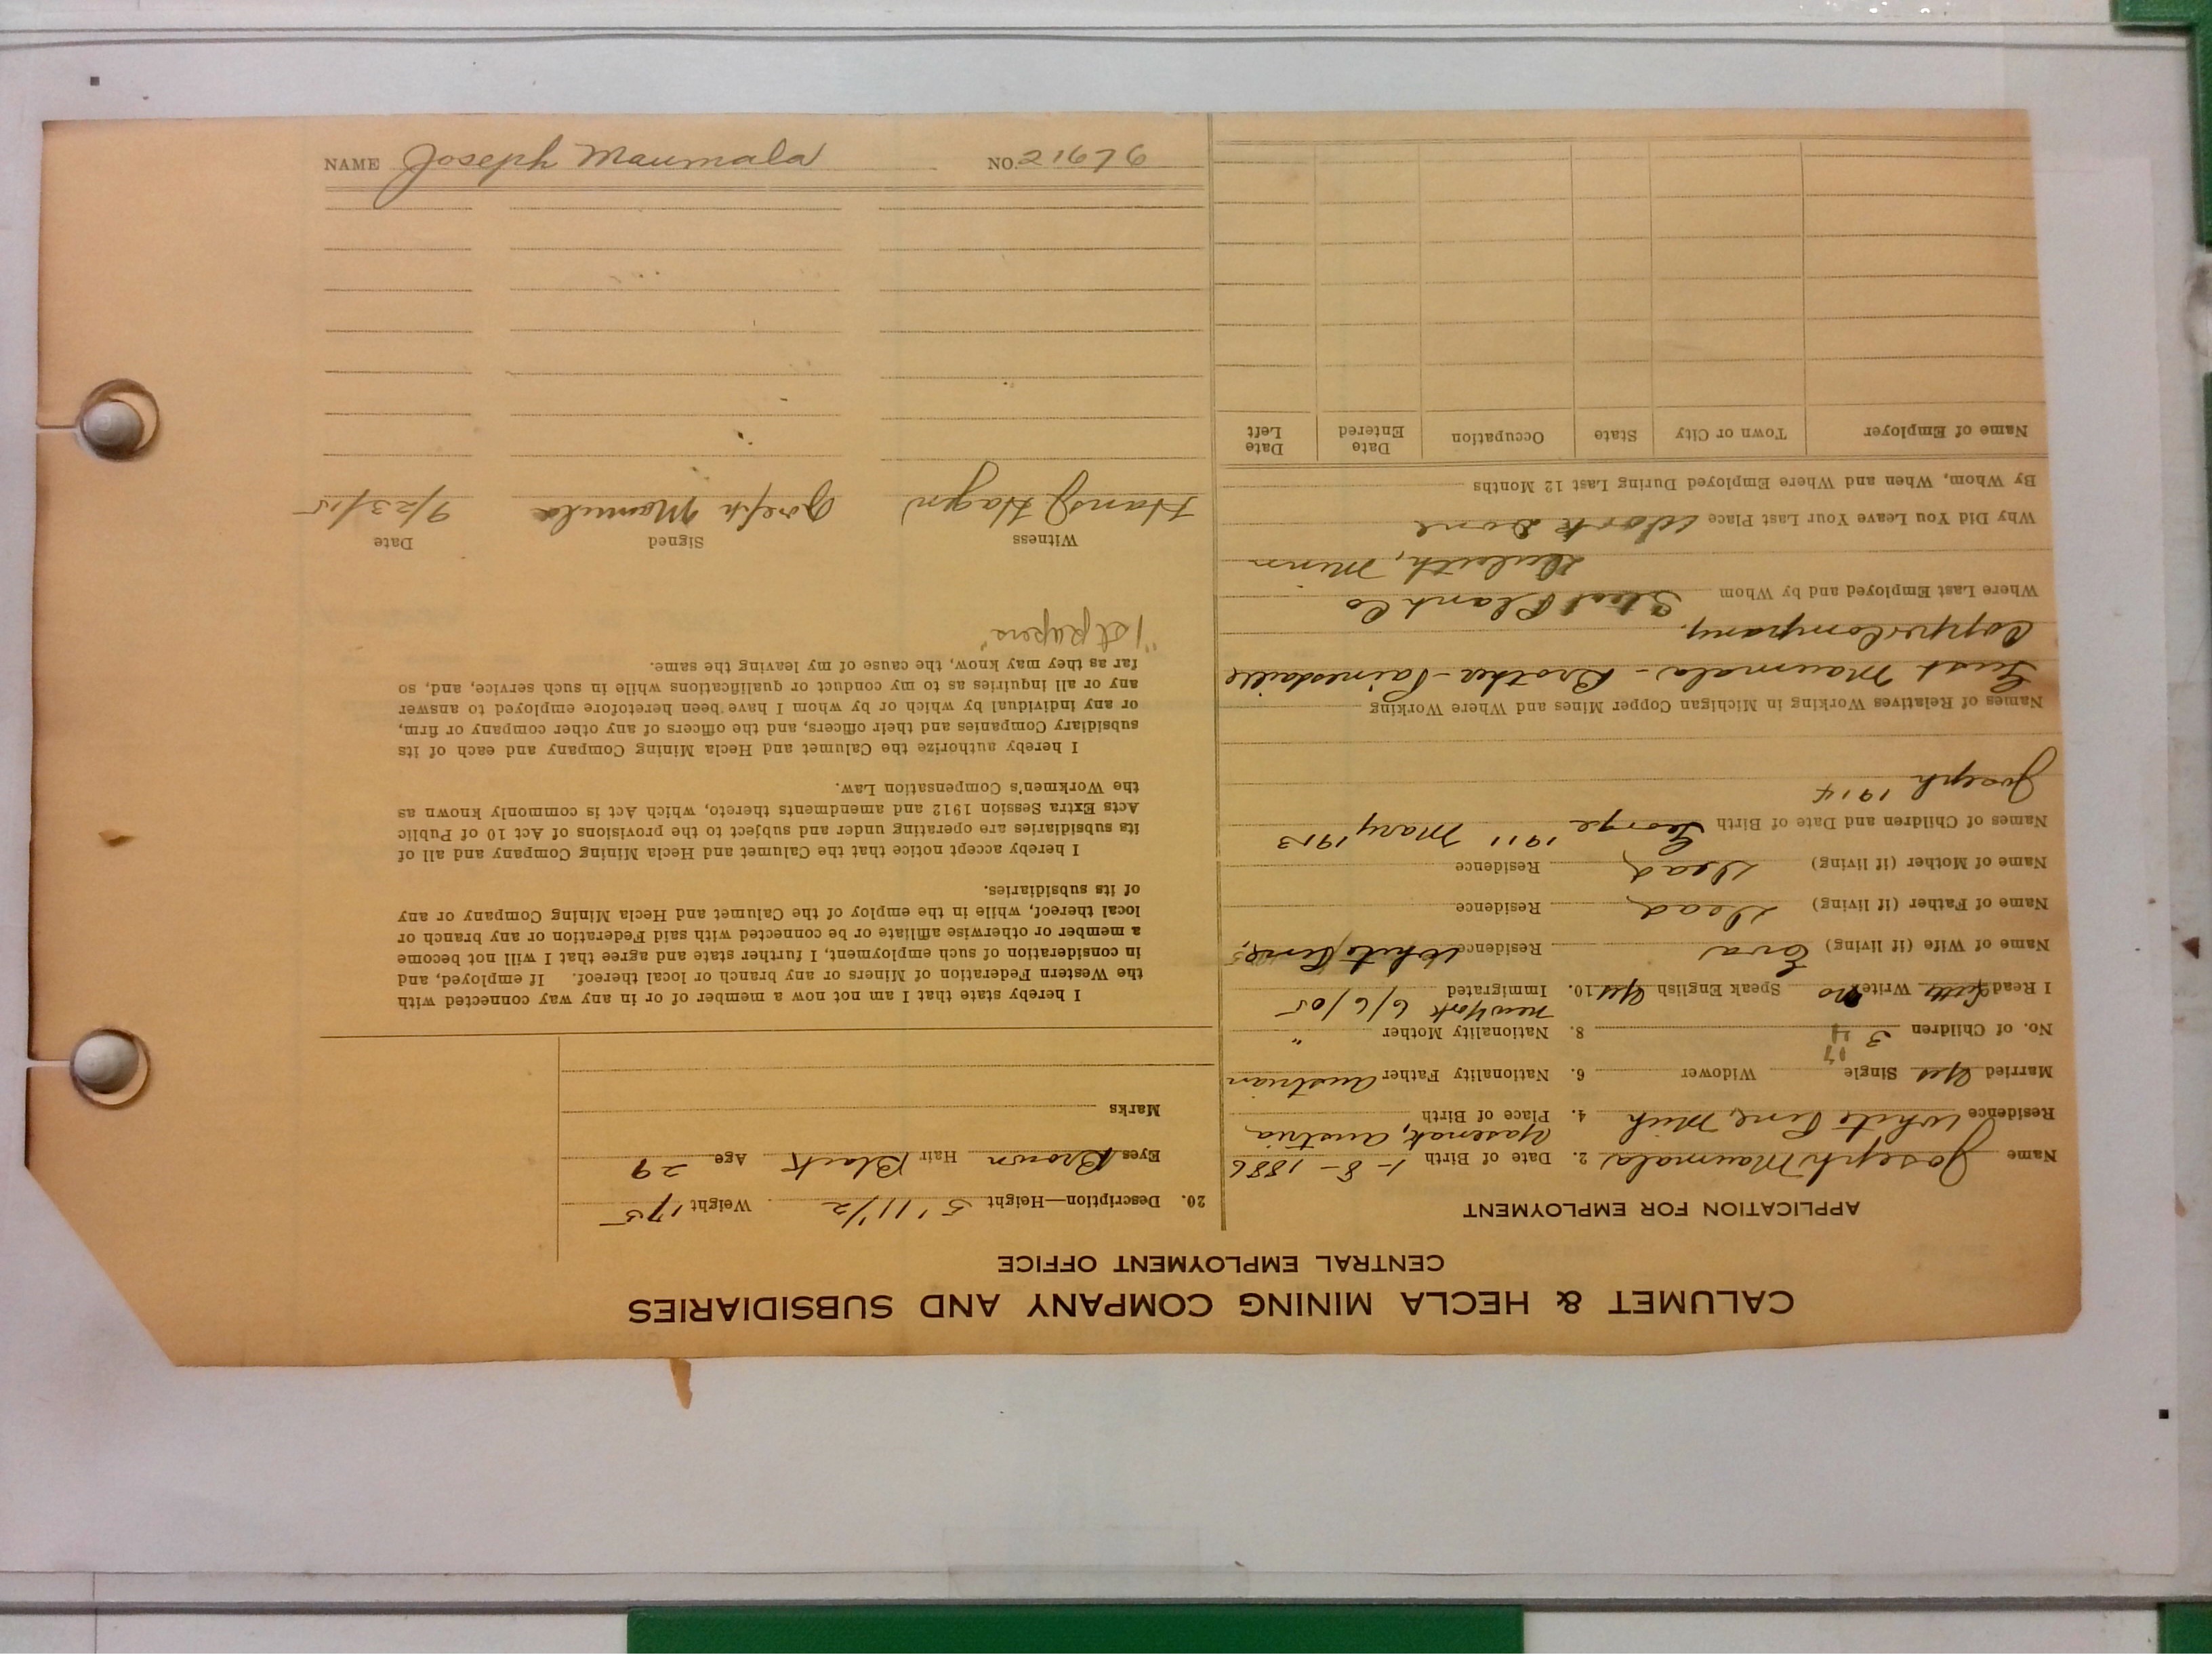 CALUMET & HECLA MINING COMPANY AND SUBSIDIARIES
CENTRAL EMPLOYMENT OFFICE
APPLICATION FOR EMPLOYMENT
Name Joseph Maumala 2. Date of Birth 1-8-1886
Residence White Pine, Mich 4. Place of Birth Yasenak, Austria
Married Yes Single Widower 6. Nationality Father Austrian
No. of Children 3 8. Nationality Mother "
I Read Little Write No Speak English Yes 10. Immigrated New York 6/6/05
Name of Wife (if living) Eva Residence White Pine,
Name of Father (if living) Dead Residence
Name of Mother (if living) Dead Residence
Names of Children and Date of Birth George 1911 Mary 1913
Joseph 1914
Names of Relatives Working in Michigan Copper Mines and Where Working
Maumala - Brother - Painesdaile
Copper Company.
Where Last Employed and by Whom Steel Plant Co
Duluth, Minn
Why Did You Leave Your Last Place Work Done
By Whom, When and Where Employed During Last 12 Months
Name of Employer Town or City State Occupation Date Entered Date Left
20. Description—Height 5' 11 1/2 Weight 175
Eyes Brown Hair Black Age 29
Marks
I hereby state that I am not now a member of or in any way connected with
the Western Federation of Miners or any branch or local thereof. If employed, and
in consideration of such employment, I further state and agree that I will not become
a member or otherwise affiliate or be connected with said Federation or any branch or
local thereof, while in the employ of the Calumet and Hecla Mining Company or any
of its subsidiaries.
I hereby accept notice that the Calumet and Hecla Mining Company and all of
its subsidiaries are operating under and subject to the provisions of Act 10 of Public
Acts Extra Session 1912 and amendments thereto, which Act is commonly known as
the Workmen's Compensation Law.
I hereby authorize the Calumet and Hecla Mining Company and each of its
subsidiary Companies and their officers, and the officers of any other company or firm,
or any individual by which or by whom I have been heretofore employed to answer
any or all inquiries as to my conduct or qualifications while in such service, and, so
far as they may know, the cause of my leaving the same.
"1st papers"
Witness Signed Date
Hans J Hagen Joseph Mamula 9/23/15
NAME Joseph Maumala NO. 21676